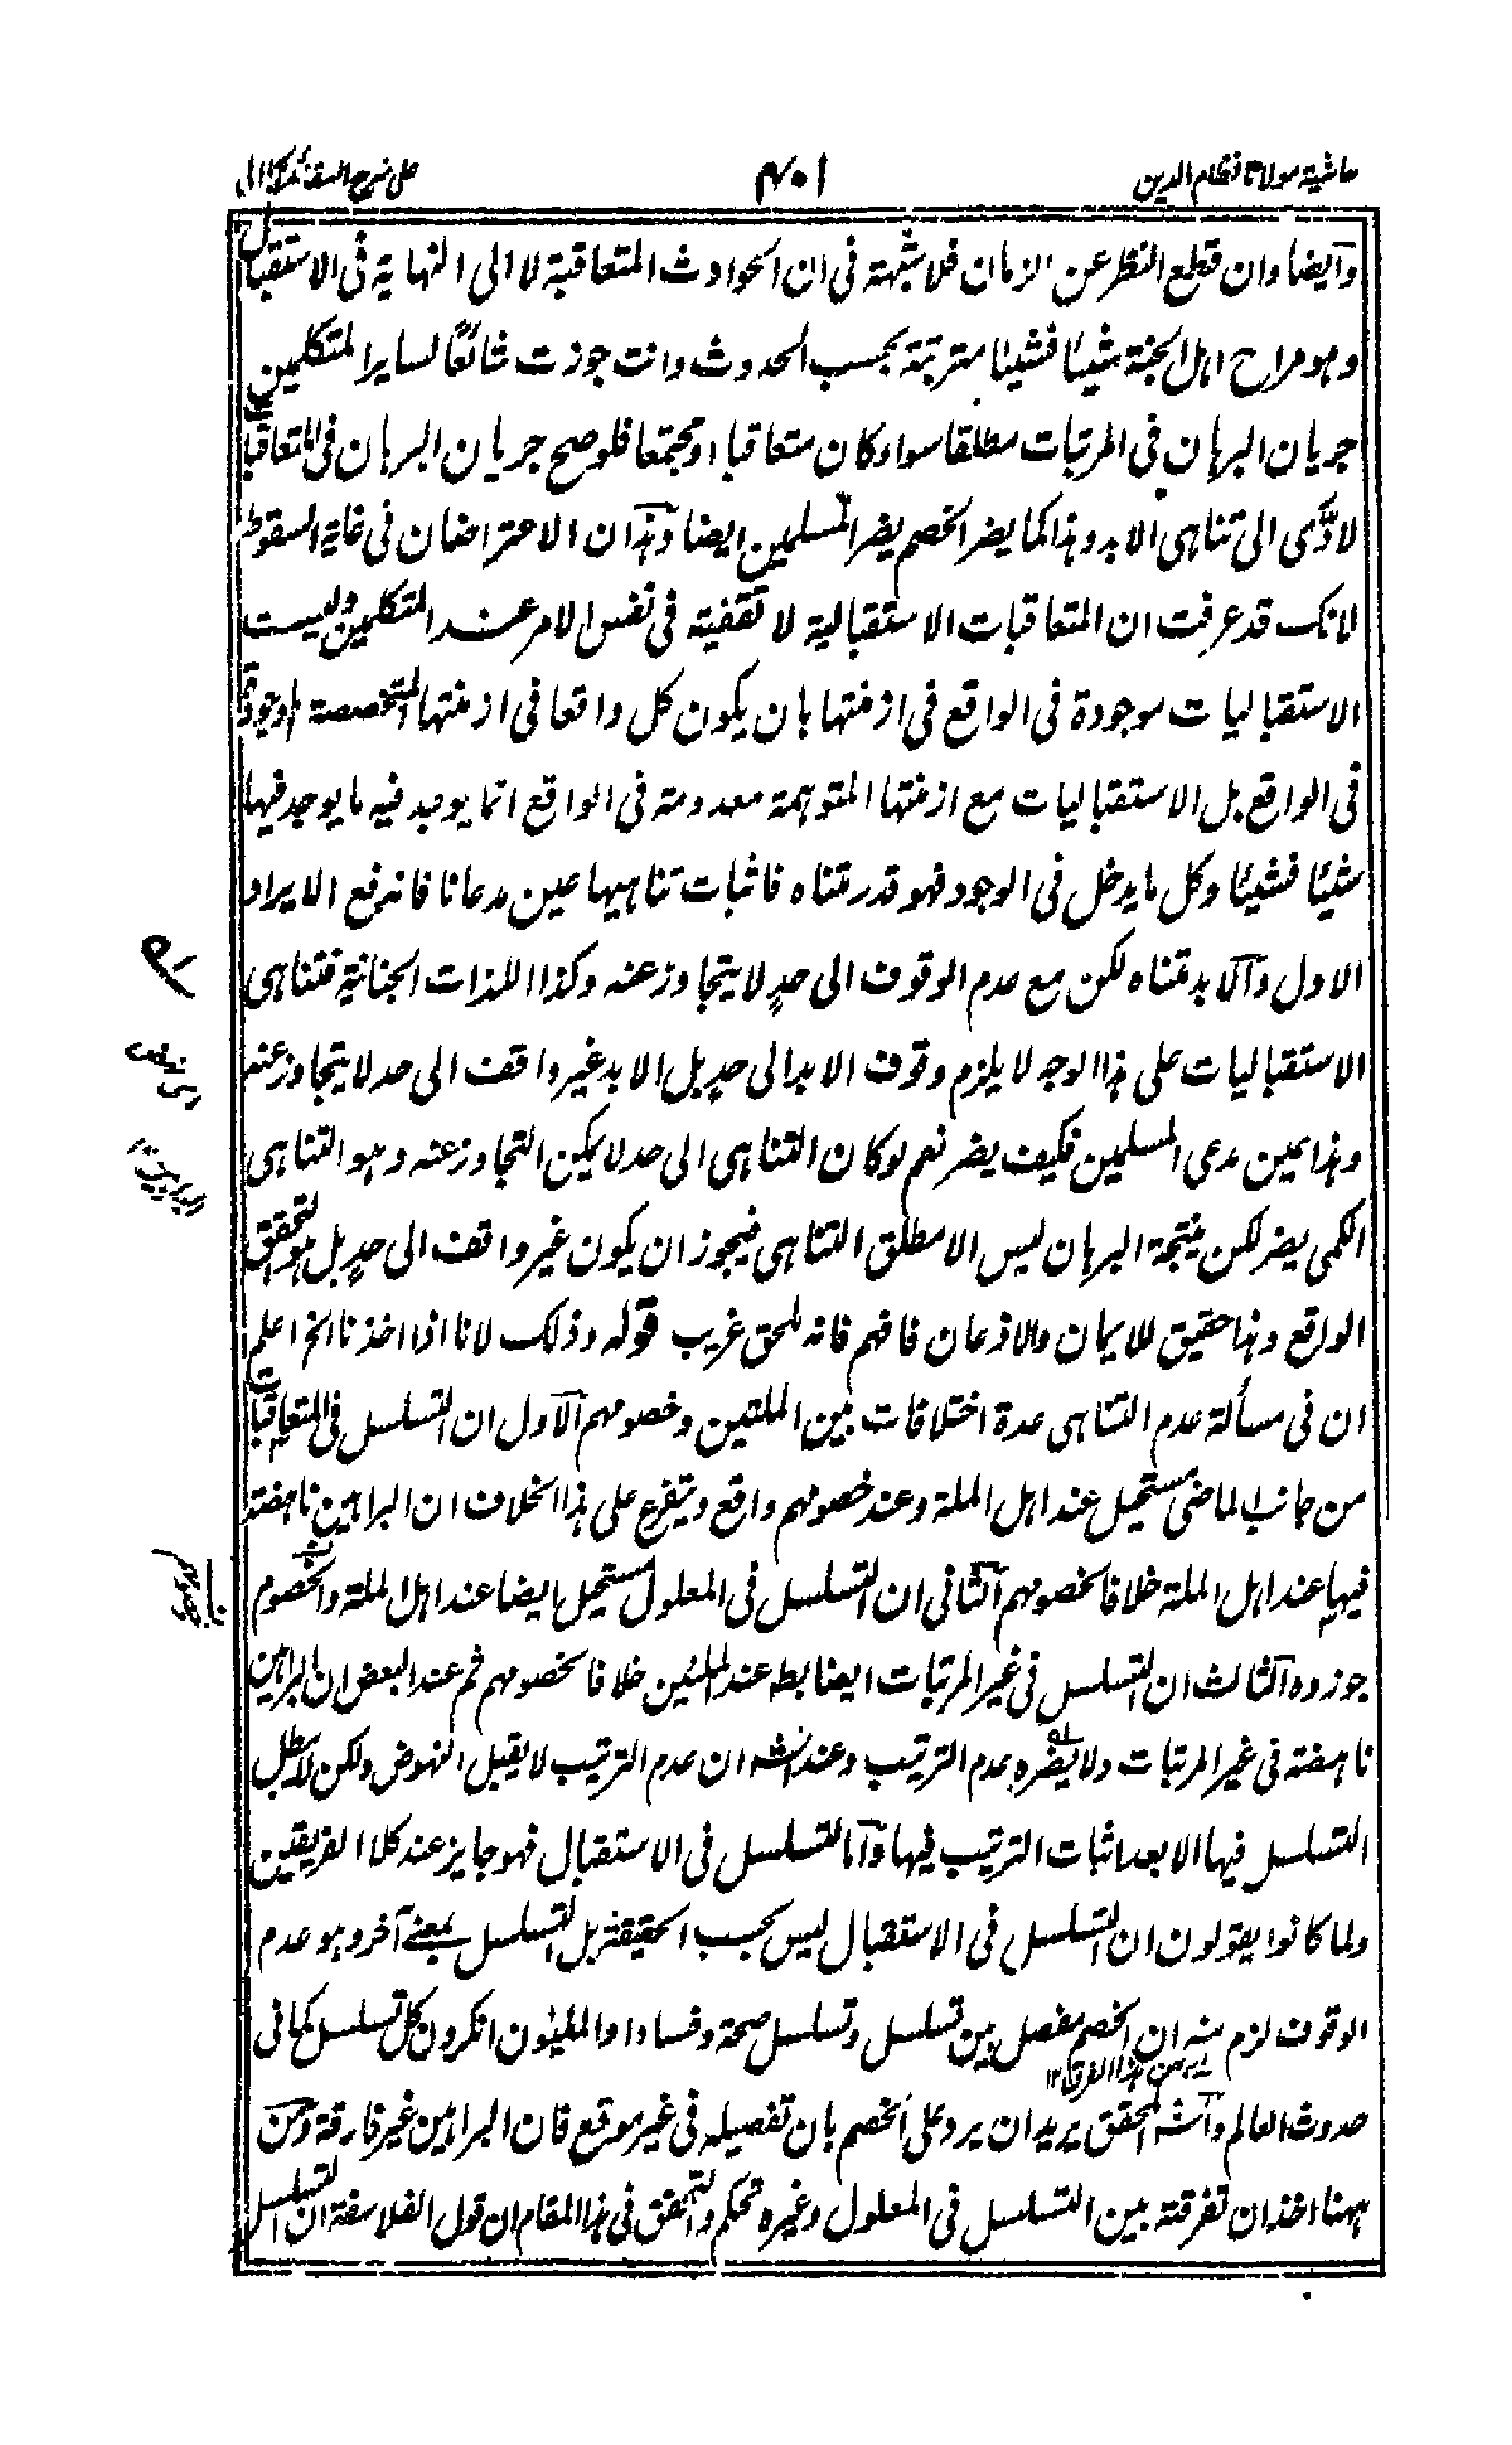 حاشية مولانا نظام الدين
١٠٤
على شرح العقائد
وايضا وان قطع النظر عن الزمان فلا شبهة فى ان الحوادث المتعاقبة لا الى النهاية فى الاستقبال
وهو مراح اهل الجنة شيئا فشيئا مترتبة بحسب الحدوث وانت جوزت شائعًا لساير المتكلمين
جريان البرهان فى المرتبات مطلقا سواء كان متعاقبا او مجتمعا فلو صح جريان البرهان فى المتعاقبات
لادّى الى تناهى الابد وهذا كما يضر الخصم يضر المسلمين ايضا وهذان الاعتراضان فى غاية السقوط
لانك قد عرفت ان المتعاقبات الاستقبالية لا تقفية فى نفس الامر عند المتكلمين وليست
الاستقباليات موجودة فى الواقع فى ازمنتها بان يكون كل واقعا فى ازمنتها المتخصصة الموجودة
فى الواقع بل الاستقباليات مع ازمنتها المتوهمة معدومة فى الواقع انما يوجد فيه ما يوجد فيها
شيئا فشيئا وكل ما يدخل فى الوجود فهو قدر متناه فاثبات تناهيها عين مدعانا فاندفع الايراد
الاول والابد متناه لكن مع عدم الوقوف الى حدٍ لا يتجاوز عنه وكذا اللذات الجنانية فتناهى
الاستقباليات على هذا الوجه لا يلزم وقوف الابد الى حدٍ بل الابد غير واقف الى حد لا يتجاوز عنه
وهذا عين مدعى المسلمين فكيف يضر نعم لو كان التناهى الى حد لا يمكن التجاوز عنه وهو التناهى
الكمى يضر لكن نتيجة البرهان ليس الا مطلق التناهى فيجوز ان يكون غير واقف الى حدٍ بل هو المتحقق
الواقع وهذا حقيق للايمان والاذعان فافهم فانه للحق غريب قوله وذلك لانا اذا اخذنا الخ اعلم
ان فى مسألة عدم التناهى عدة اختلافات بين المليين وخصومهم الاول ان التسلسل فى المتعاقبات
من جانب الماضى مستحيل عند اهل الملة وعند خصومهم واقع ويتفرع على هذا الخلاف ان البراهين ناهضة
فيها عند اهل الملة خلافا لخصومهم الثانى ان التسلسل فى المعلول مستحيل ايضا عند اهل الملة والخصوم
جوزوه الثالث ان التسلسل فى غير المرتبات ايضا بط عند المليين خلافا لخصومهم ثم عند البعض ان البراهين
ناهضة فى غير المرتبات ولا يضره عدم الترتيب وعند الش ان عدم الترتيب لا يقبل النهوض ولكن لا يبطل
التسلسل فيها الا بعد اثبات الترتيب فيها واما التسلسل فى الاستقبال فهو جايز عند كلا الفريقين
ولما كانوا يقولون ان التسلسل فى الاستقبال ليس بحسب الحقيقة بل التسلسل بمعنى آخر وهو عدم
الوقوف لزم منه ان الخصم مفصل بين تسلسل وتسلسل صحة وفسادا والمليون انكرون كل تسلسل كما فى
حدوث العالم والش المحقق يريد ان يرد على الخصم بان تفصيله فى غير موقع فان البراهين غير فارقة ومن
ههنا اخذ ان تفرقة بين التسلسل فى المعلول وغيره تحكم والتحقق فى هذا المقام ان قول الفلاسفة ان التسلسل